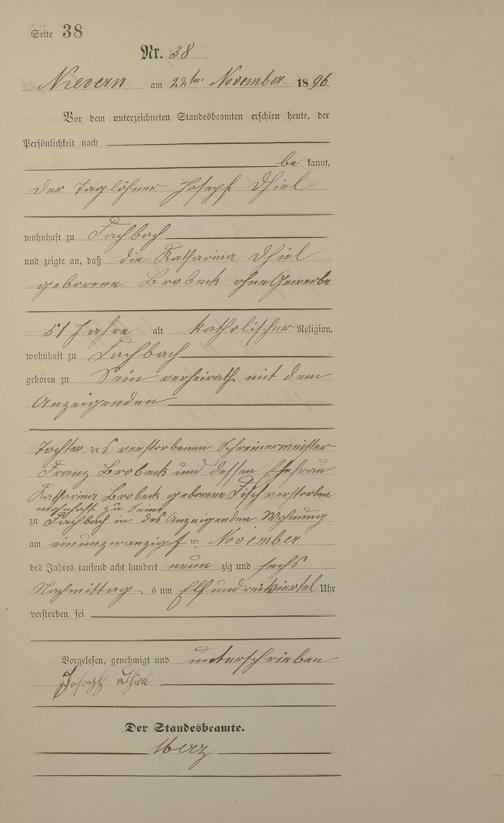 Seite 38
Nr. 38
Nievern am 22ten November 1896.
Vor dem unterzeichneten Standesbeamten erschien heute, der
Persönlichkeit nach
be kannt,
der Taglöhner Joseph Thiel
wohnhaft zu Fachbach
und zeigte an, daß die Katharina Thiel
geborene Brobeck ohne Gewerbe
51 Jahre alt katholischer Religion,
wohnhaft zu Fachbach
geboren zu Sein verheirath. mit dem
Anzeigenden
Tochter des verstorbenen Schreinermeister
Franz Brobeck und dessen Ehefrau
Katharina Brobeck geborene Fisch verstorben
wohnhaft zu Sein
zu Fachbach in des Anzeigenden Wohnung
am einundzwanzigst en November
des Jahres tausend acht hundert neun zig und sechs
Nachmittag s um Elf und dreiviertel Uhr
verstorben sei
Vorgelesen, genehmigt und unterschrieben
Joseph Thiel
Der Standesbeamte.
Merz